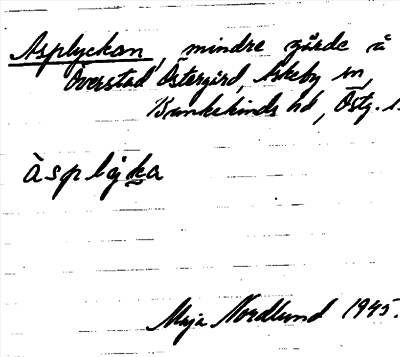 Asplyckan, mindre gärde å
Överstad Östergård, Askeby sn,
Bankekinds hd, Östg. l.
àsplyka
Maja Nordlund 1945.